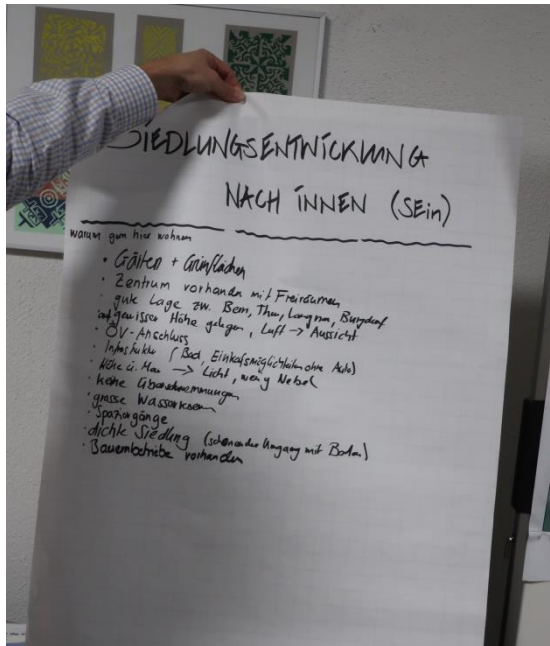 SIEDLUNGSENTWICKLUNG
NACH INNEN (SEin)
warum gern hier wohnen
• Gärten + Grünflächen
• Zentrum vorhanden mit Freiräumen
• gute Lage zw. Bern, Thun, Langnau, Burgdorf
• auf gewisser Höhe gelegen, Luft → Aussicht
• ÖV-Anschluss
• Infrastruktur (Bad, Einkaufsmöglichkeiten ohne Auto)
• Höhe ü. Meer → Licht, wenig Nebel
• keine Überschwemmungen
• grosse
• Spaziergänge
• dichte Siedlung (schonender Umgang mit Boden)
• Bauernbetriebe vorhanden